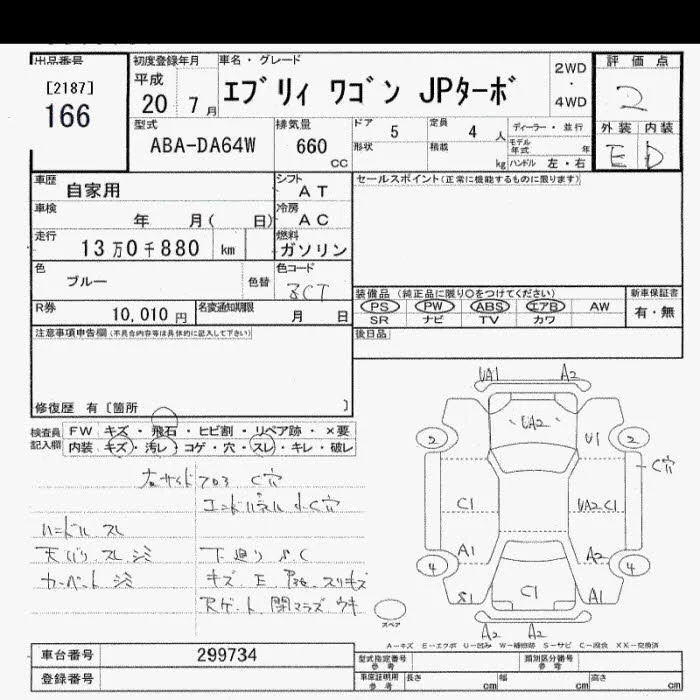 出品番号 初度登録年月 車名・グレード 評価点
[2187]
166
平成 20 7月 エブリィ ワゴン JPターボ 2WD・4WD 2
型式 排気量 ドア 5 定員 4人 ディーラー・並行 外装 内装
ABA-DA64W 660 CC 形状 積載 kg モデル年式 年 E D
ハンドル 左・右
車歴 自家用 シフト AT セールスポイント(正常に機能するものに限ります)
車検 年 月( 日) 冷房 AC
走行 13万0千880 km 燃料 ガソリン
色 ブルー 色替 色コード ZCT
装備品(純正品に限り○をつけてください) 新車保証書
R券 10,010円 名変通知期限 月 日 PS PW ABS エアB AW 有・無
SR ナビ TV カワ
注意事項申告欄(不具合内容等は具体的に記入して下さい) 後日品
修復歴 有〔箇所 〕
検査員記入欄 FW キズ・飛石・ヒビ割・リペア跡・×要
内装 キズ・汚レ・コゲ・穴・スレ・キレ・破レ
UA1 A2
UA2
2 U1 2
C穴
C1 UA2 C1
A1 A2
4 4
S1 C1 A1
A2 A2
スペア
左サイド C穴
エンドパネル 小C穴
ハンドル スレ
天バリ スレ 下廻り S C
カーペット キズ E スリキズ
Rゲート 閉マラズ ウキ
A−キズ E−エクボ U−凹み W−補修跡 S−サビ C−腐食 XX−交換済
車台番号 299734 型式指定番号 参考 類別区分番号 参考
登録番号 車庫証明用 参考 長さ cm 幅 cm 高さ cm